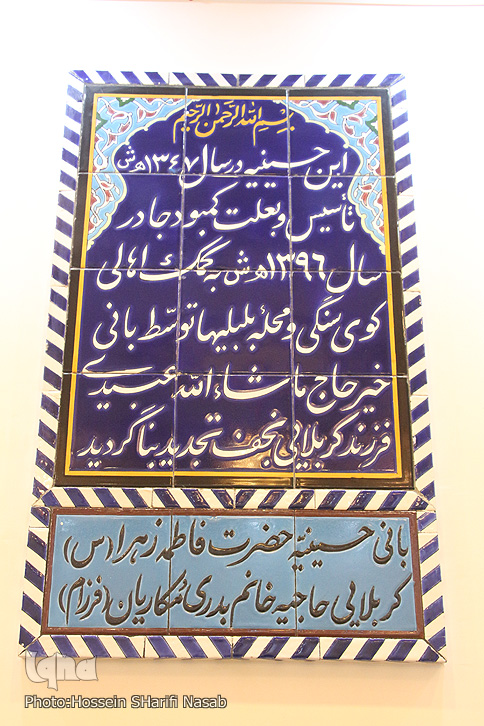 بسم الله الرحمن الرحیم
این حسینیه در سال ۱۳۴۷ ه ش
تأسیس و بعلت کمبود جا در
سال ۱۳۹۶ ه ش به کمک اهالی
کوی سنگی و محله بلبلیها توسط بانی
خیر حاج ماشاءالله عبیدی
فرزند کربلایی نجف تجدید بنا گردید
بانی حسینیه حضرت فاطمه زهرا (س)
کربلایی حاجیه خانم بدری شکاریان (فرزام)
iqna
Photo:Hossein SHarifi Nasab